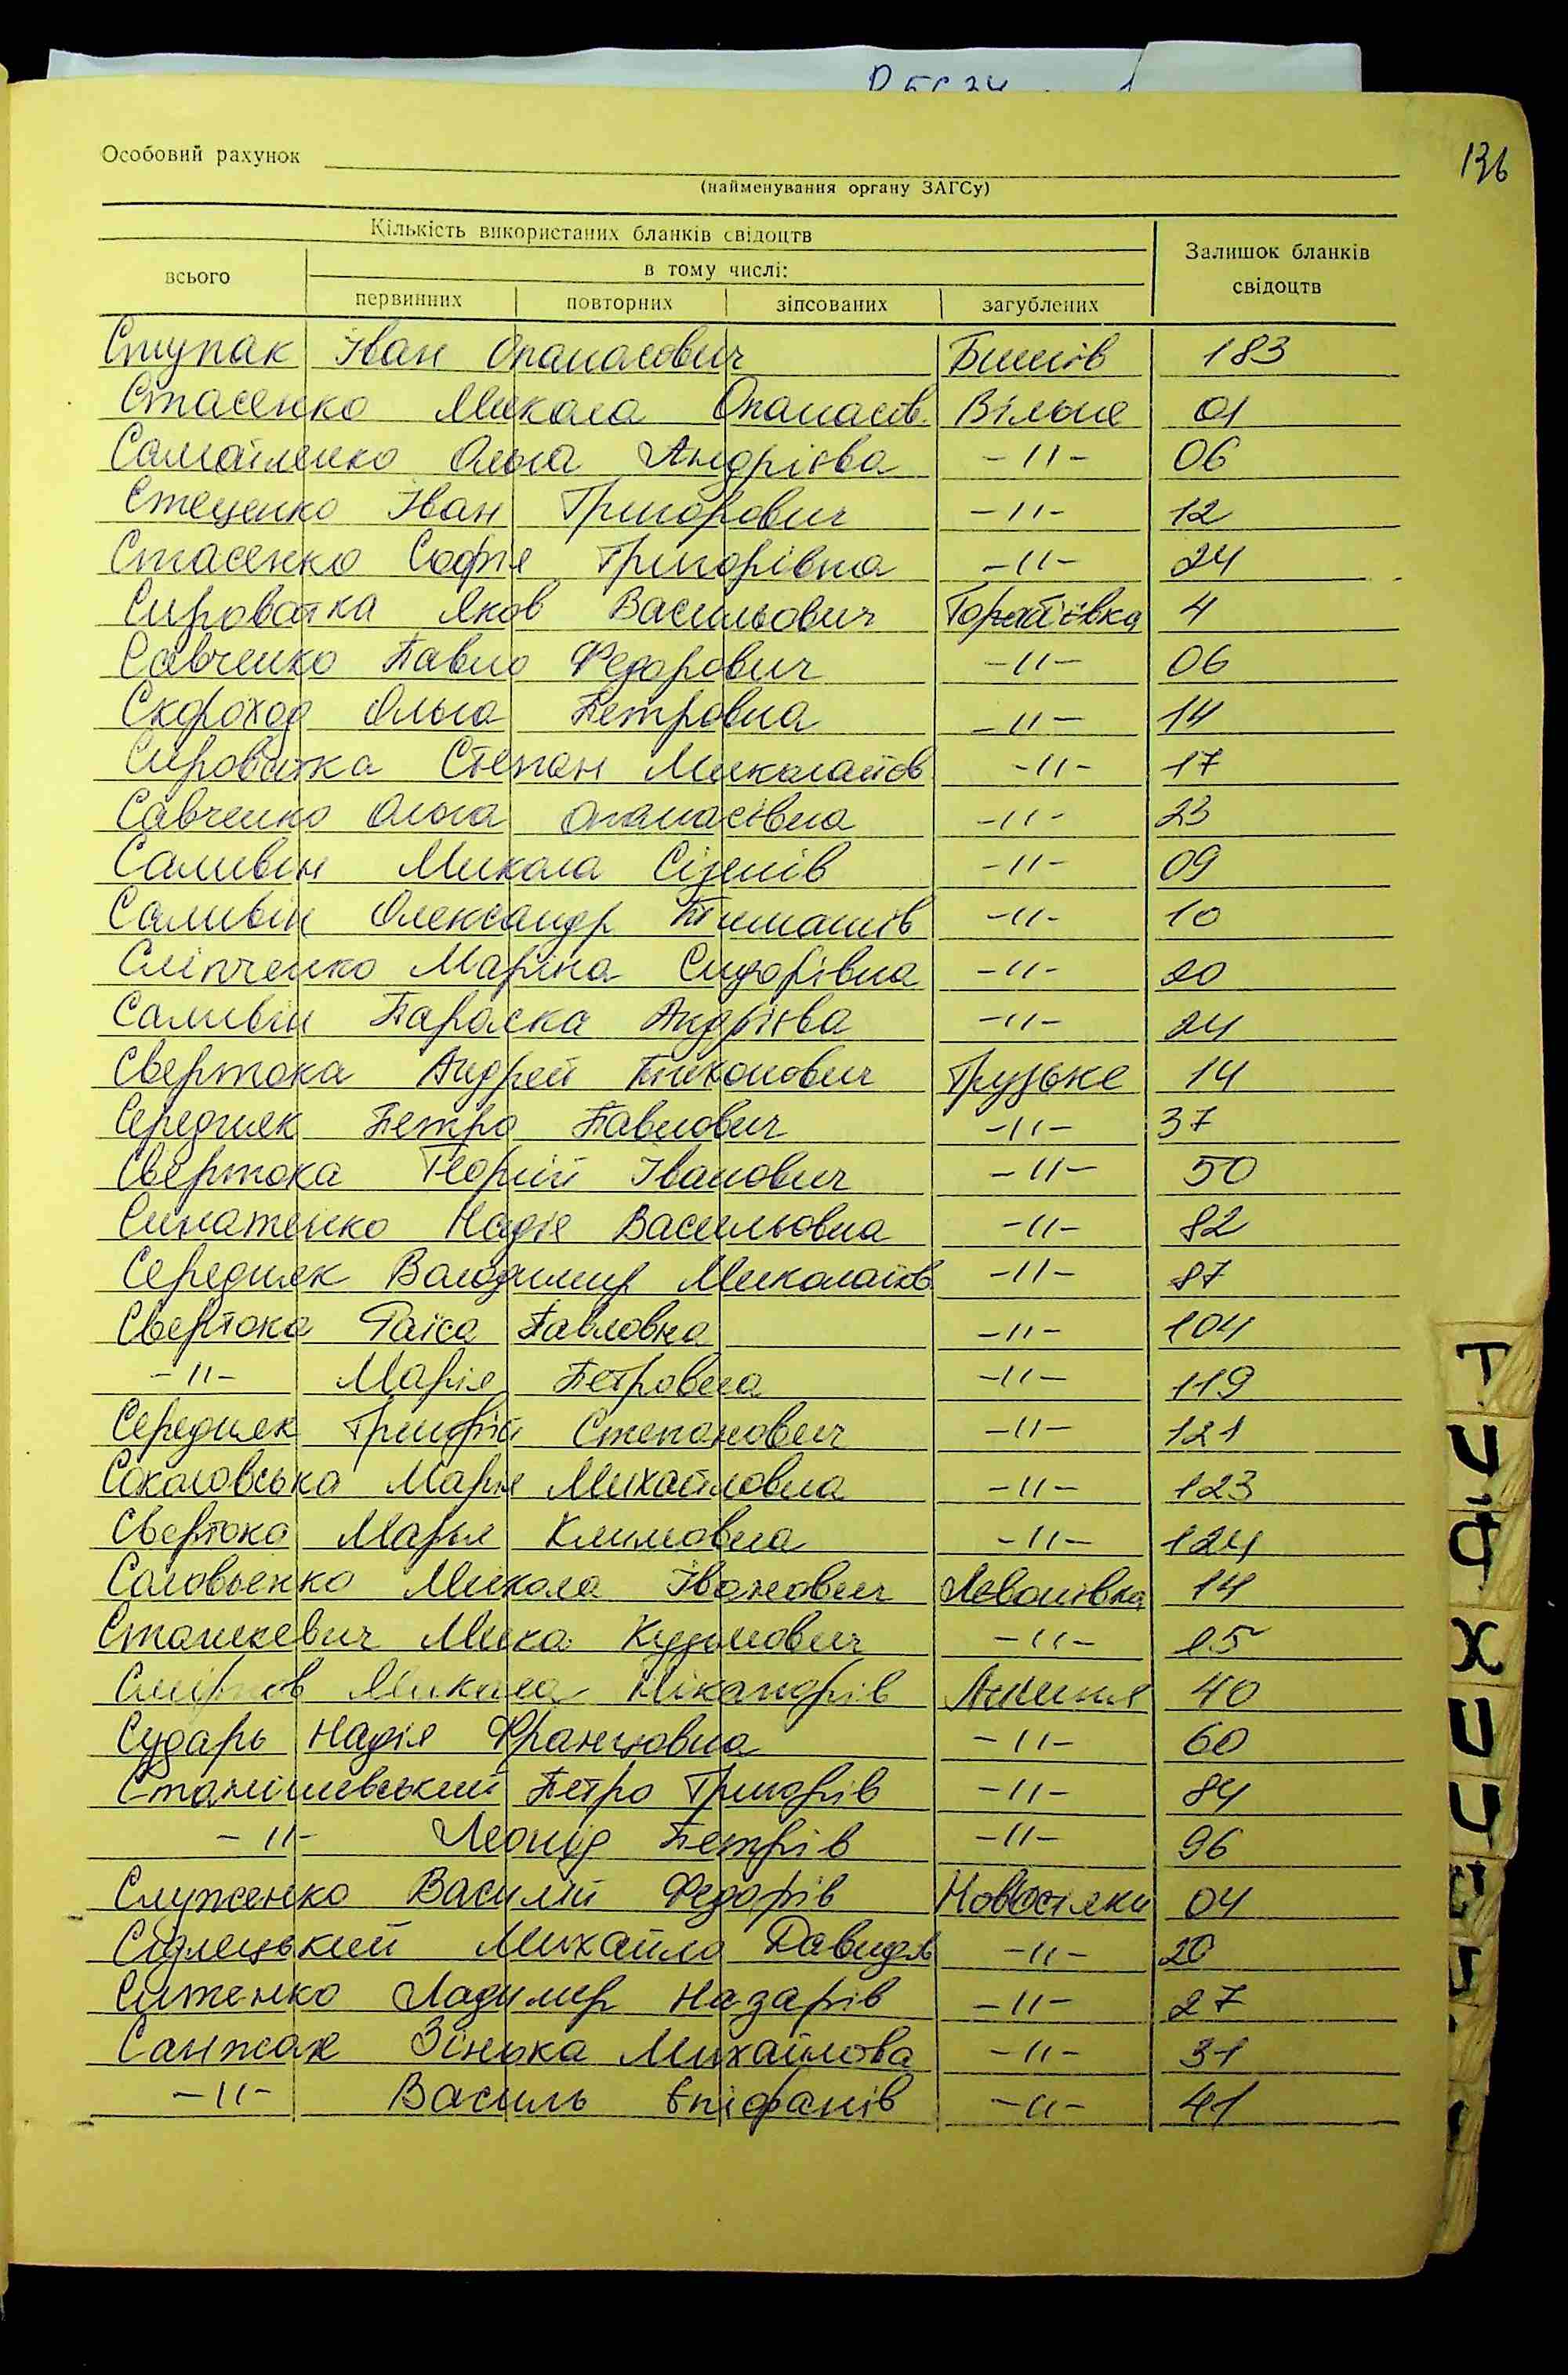 136
Особовий рахунок
(найменування органу ЗАГСу)
Кількість використаних бланків свідоцтв
Залишок бланків свідоцтв
всього
в тому числі:
первинних повторних зіпсованих загублених
Ступак Іван Опанасович Бишів 183
Стасенко Микола Опанасів. Вільне 01
Самойленко Ольга Андрієва -〃- 06
Стеценко Іван Григорович -〃- 12
Стасенко Софія Григорівна -〃- 24
Сироватка Яков Васильович 4
Савченко Павло Федорович -〃- 06
Скороход Ольга Петровна -〃- 14
Сироватка Степан Миколайов -〃- 17
Савченко Ольга Опанасівна -〃- 23
Саливін Микола -〃- 09
Саливін Олександр -〃- 10
Сліпченко Маріна Сидорівна -〃- 20
Саливін Параска Андрієва -〃- 24
Свертока Андрей Тихонович Грузьке 14
Середняк Петро Павлович -〃- 37
Свертока Георгій Іванович -〃- 50
Надія Васильовна -〃- 82
Середняк Володимир Миколайов -〃- 87
Свертока Раїса Павловна -〃- 104
-〃- Марія Петровна -〃- 119
Середняк Григорій Степанович -〃- 121
Соколовська Марія Михайловна -〃- 123
Свертока Марья Климовна -〃- 124
Соловьенко Микола Іванович Леонівка 14
Станкевич Мика Кузьмович -〃- 15
Смірнов Микола Нікандрів 40
Сударь Надія Францовна -〃- 60
Станішевський Петро Григорів -〃- 84
-〃- Леонід Петрів -〃- 96
Служенко Василій Федорів Новосілки 04
Сідлецький Михайло Давидів -〃- 20
Ситенко Ладимер Назарів -〃- 27
Санжак Зінька Михайлова -〃- 31
-〃- Василь Епіфанів -〃- 41
Т
У
Ф
Х